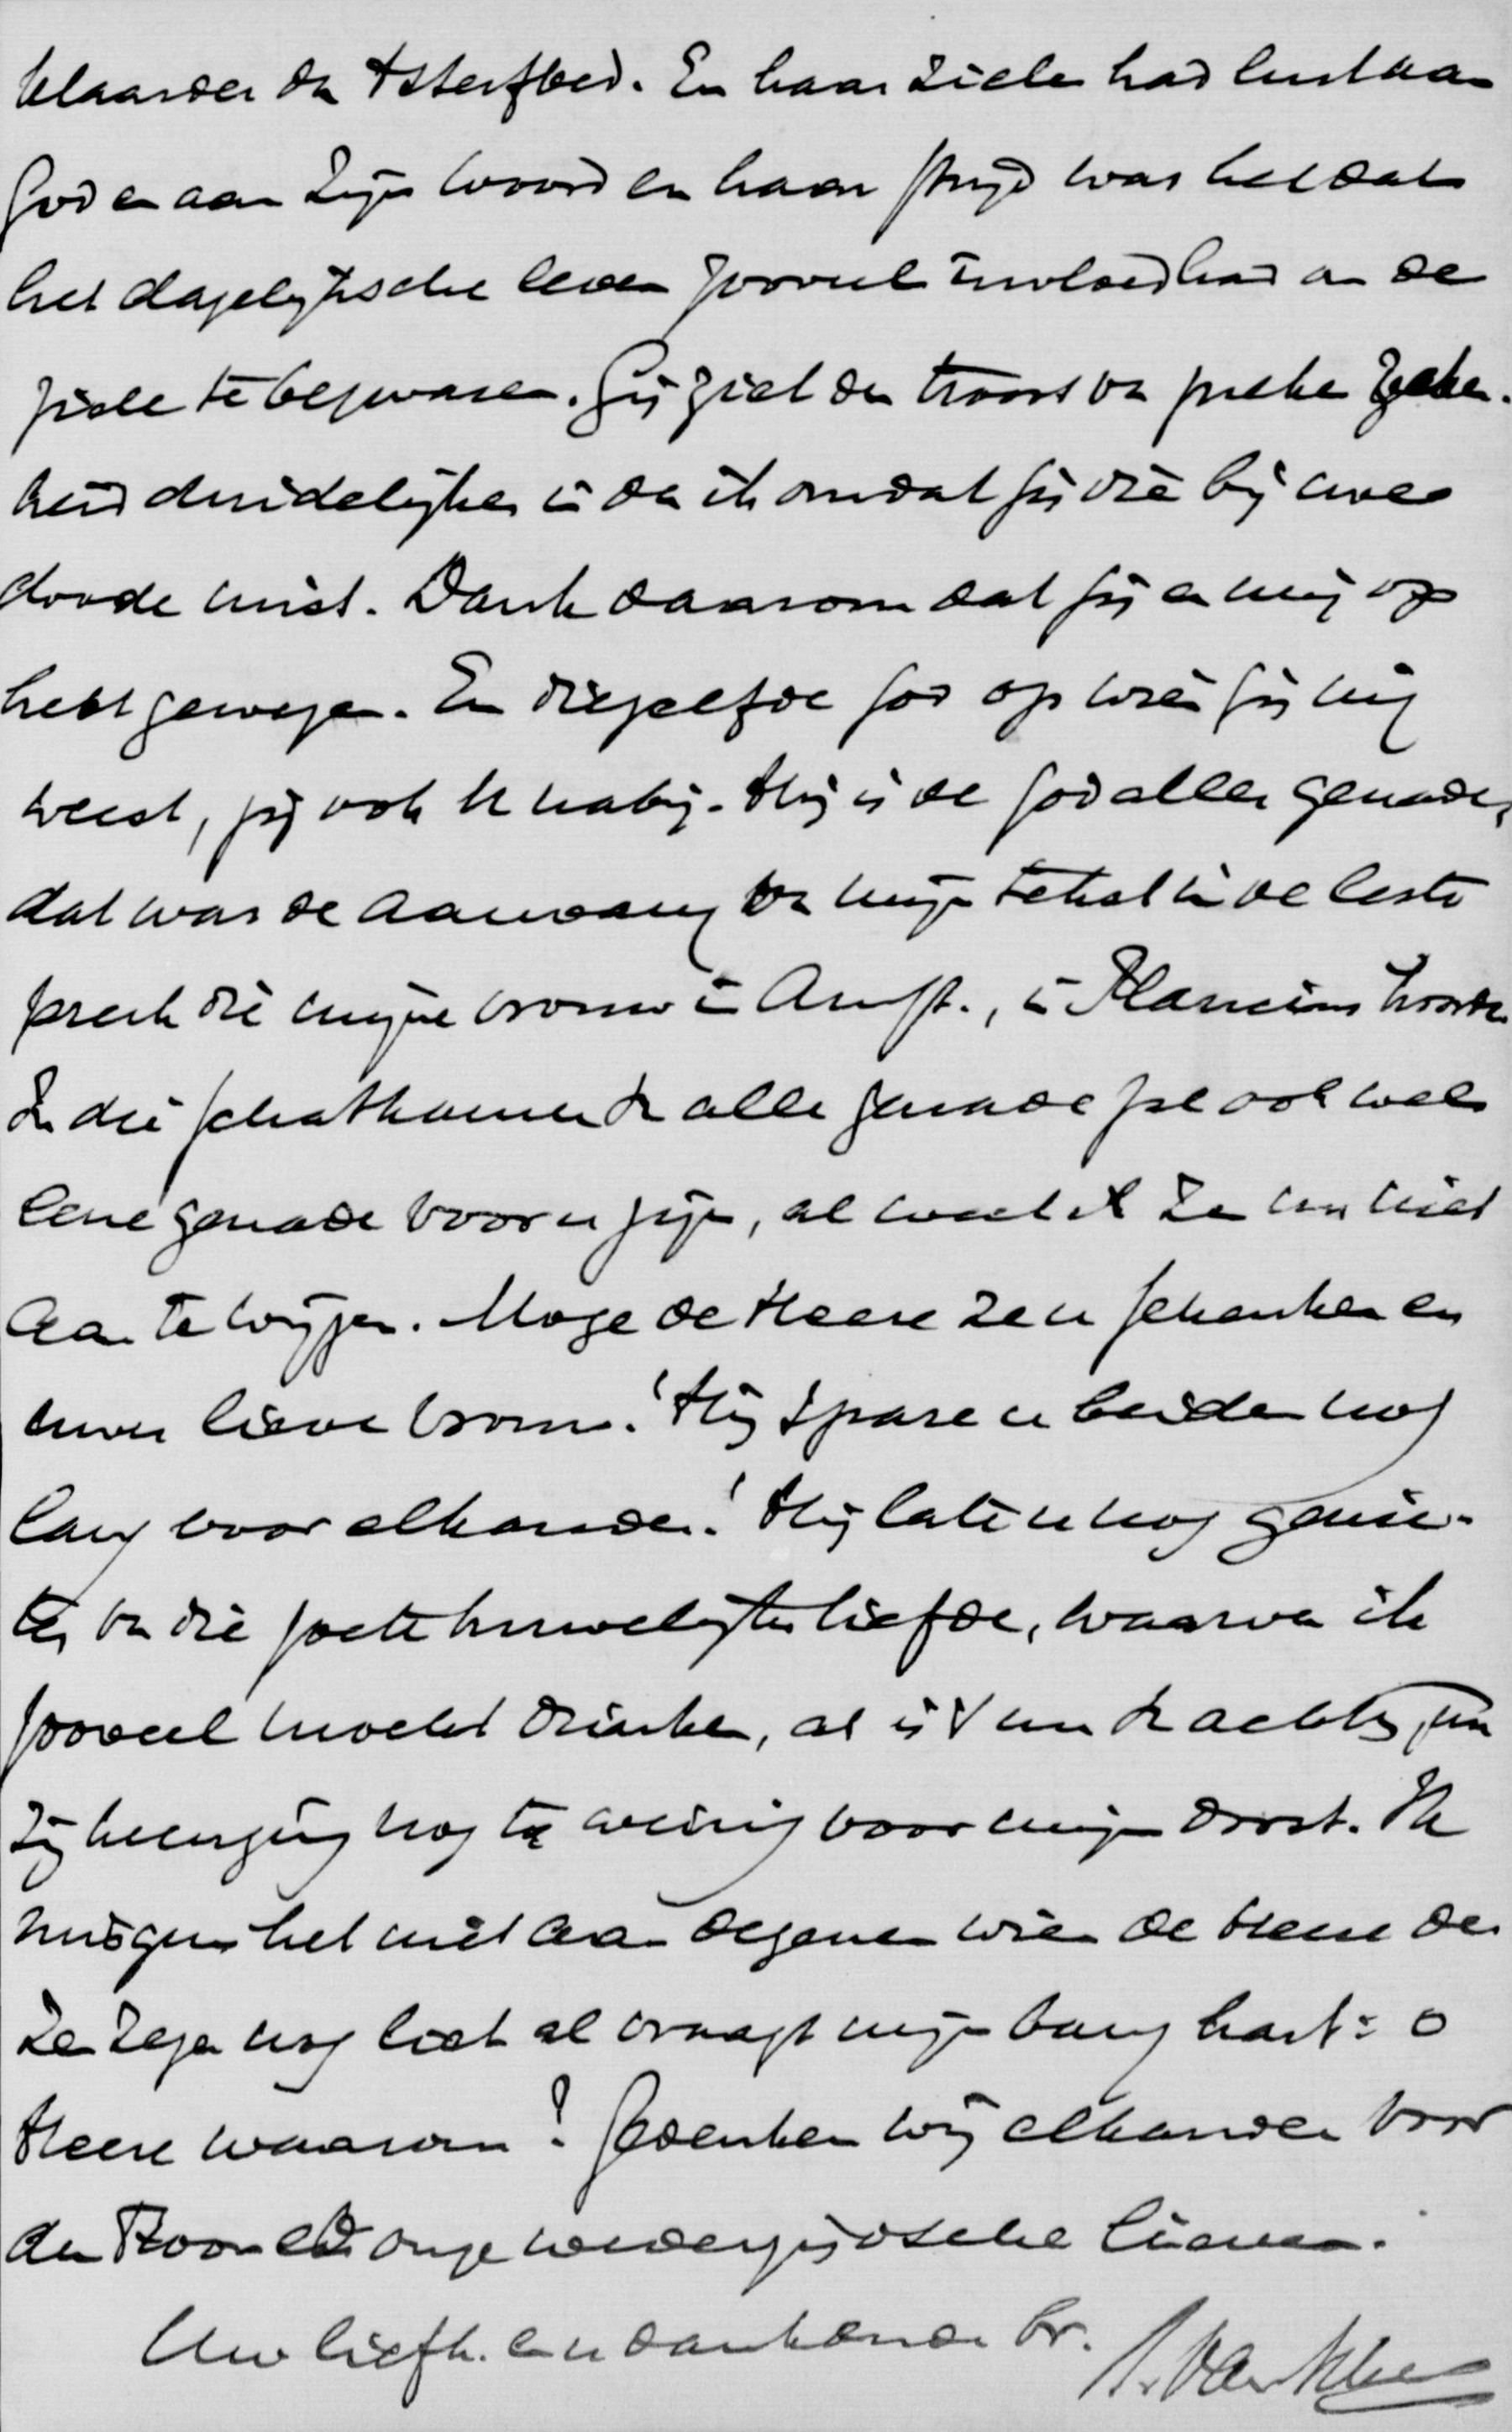 klaarder dan 't sterfbed. En haar ziele had lust aan
God en aan Zijn woord en haar strijd was het dat
het dagelijksche leven zooveel invloed had om de
ziele te bezwaren. Gij ziet den troost van zulke zeker-
heid duidelijker in dan ik omdat gij die bij uwe
doode mist. Dank daarom dat gij er mij op
hebt gewezen. En diezelfde God op wien gij mij
weest, zij ook U nabij. Hij is de God aller genade,
dat was de aanvang van mijn tekst in de leste
preek die mijne vrouw in Amst., in Plancius hoorde
In die schatkamer van alle genade zal ook wel
eene genade voor u zijn, al weet ik ze nu niet
aan te wijzen. Moge de Heere ze u schenken en
uwer lieve vrouw! Hij spare u beiden nog
lang voor elkander! Hij late u nog genie-
ten van die zoete huwelijksliefde, waarvan ik
zooveel mocht drinken, al is 't nu
zij heenging nog te weinig voor mijn dorst. Ik
misgun het niet aan degenen wien de Heere de-
ze zegen nog liet al vraagt mijn bang hart: o
Heere waarom? Gedenken wij elkander voor
den Troon en onze wederzijdsche lieven.
Uw liefh. en u dankende br.